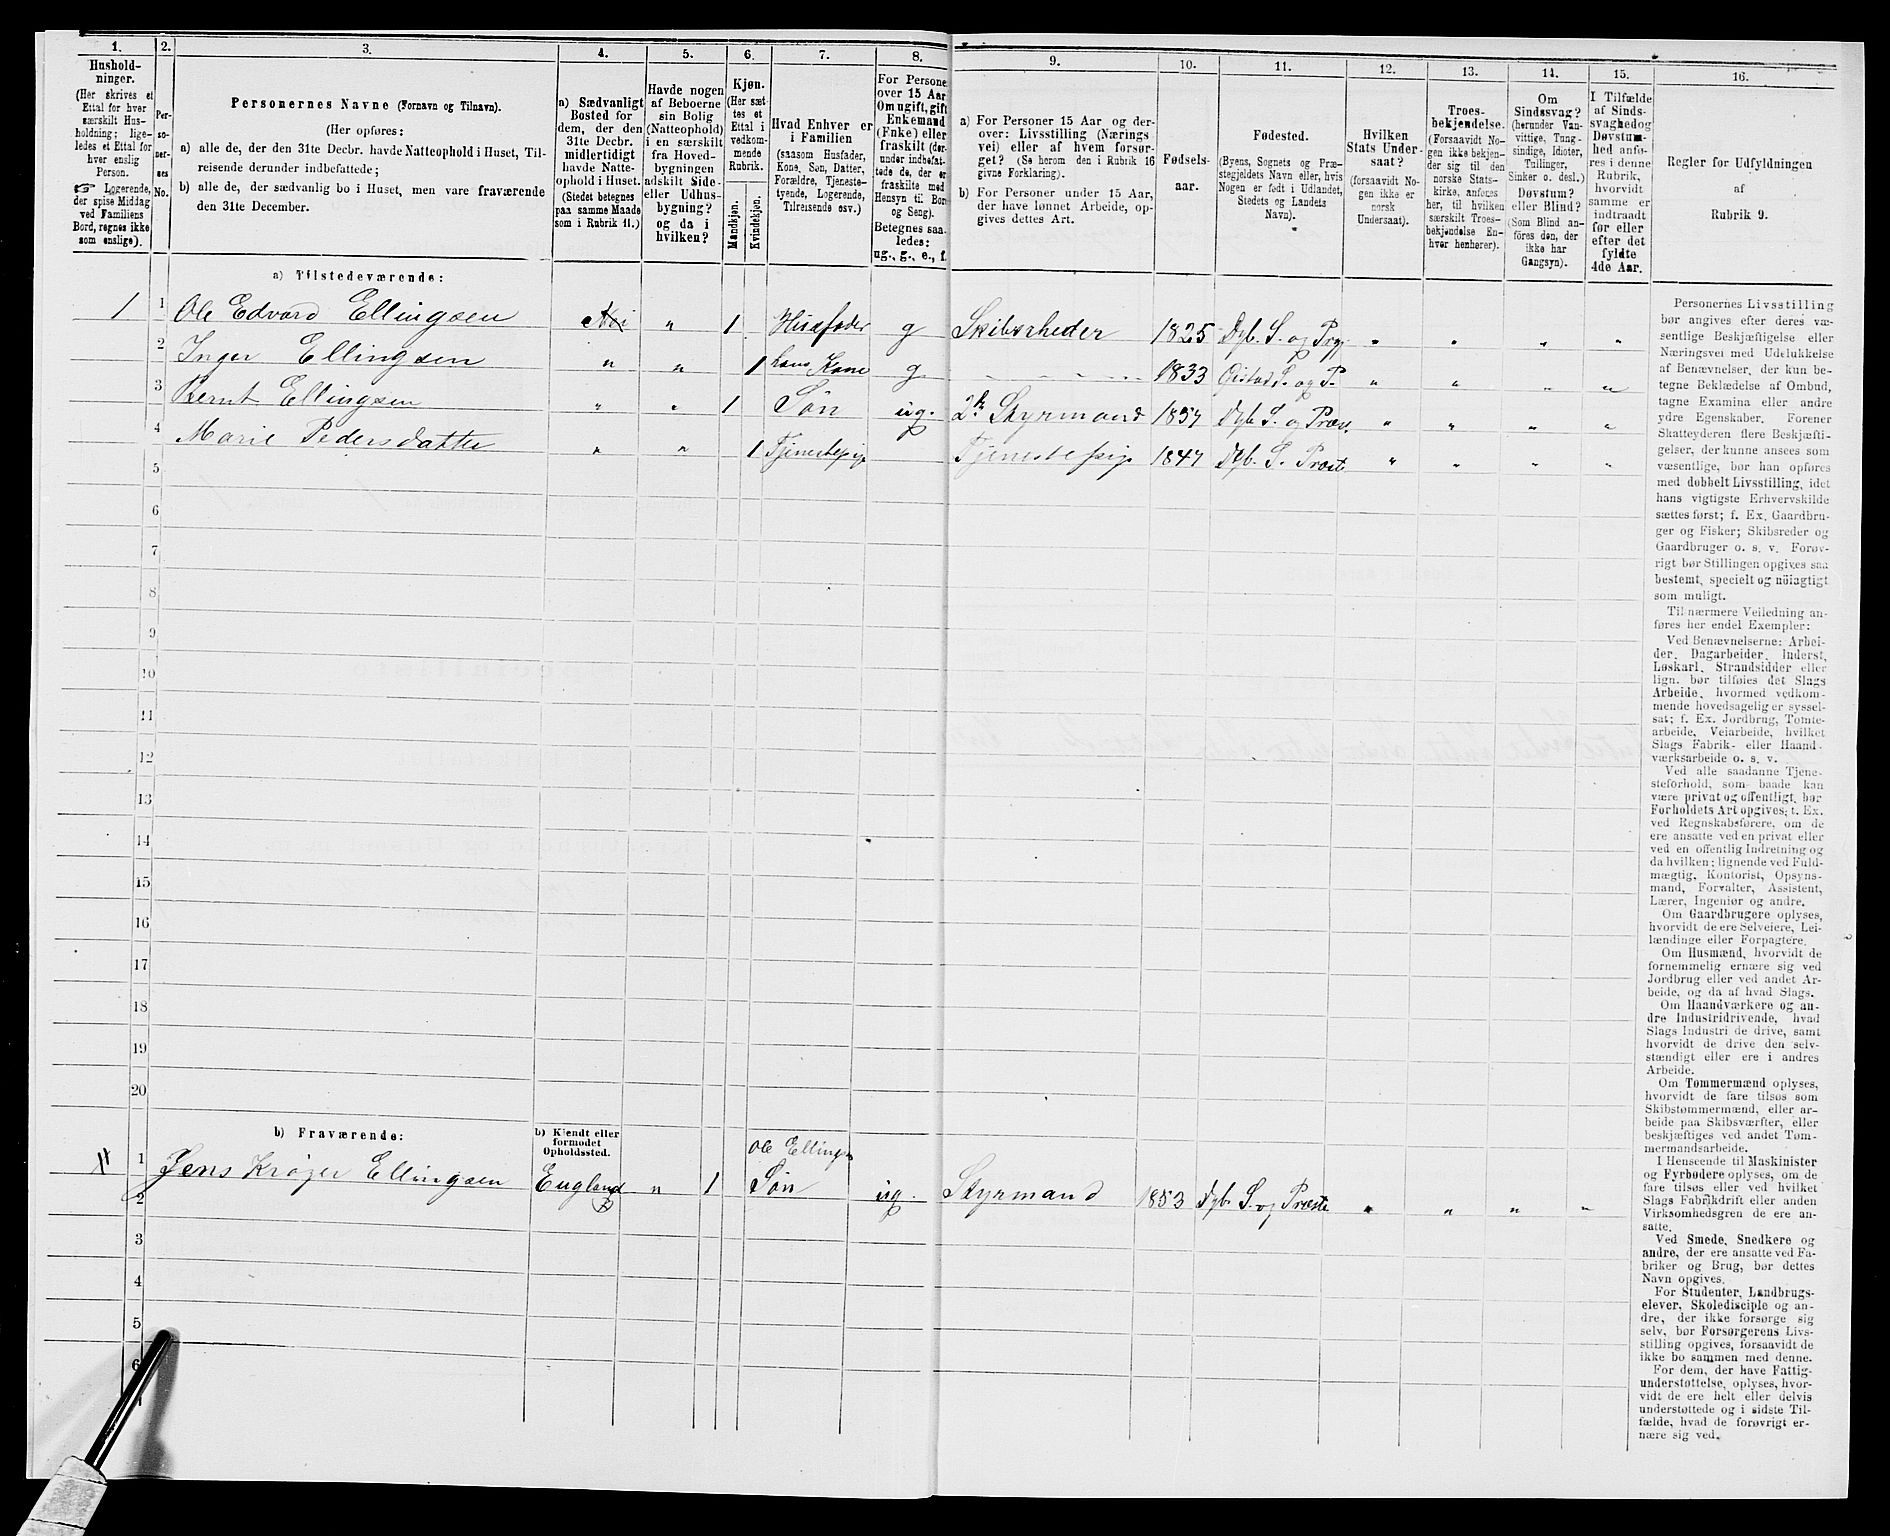 1.
Hushold-
ninger.
(Her skrives et
Ettal for hver
særskilt Hus-
holdning; lige-
ledes et Ettal for
hver enslig
Person.
☞ Logerende,
der spise Middag
ved Familiens
Bord, regnes ikke
som enslige).
2.
Per-
so-
ner-
nes
No.
3.
Personernes Navne (Fornavn og Tilnavn).
(Her opføres:
a) alle de, der den 31te Decbr. havde Natteophold i Huset, Til-
reisende derunder indbefattede;
b) alle de, der sædvanlig bo i Huset, men vare fraværende
den 31te December.
4.
a) Sædvanligt
Bosted for
dem, der den
31te Decbr.
midlertidigt
havde Natte-
ophold i Huset.
(Stedet betegnes
paa samme Maade
som i Rubrik 11.)
5.
Havde nogen
af Beboerne
sin Bolig
(Natteophold)
i en særskilt
fra Hoved-
bygningen
adskilt Side-
eller Udhus-
bygning?
og da i
hvilken?
6.
Kjøn.
(Her sæt-
tes et
Ettal i
vedkom-
mende
Rubrik.
Mandkjøn.
Kvindekjøn.
7.
Hvad Enhver er
i Familien
(saasom Husfader,
Kone, Søn, Datter,
Forældre, Tjeneste-
tyende, Logerende,
Tilreisende osv.)
8.
For Persone
over 15 Aar
Om ugift, gift
Enkemand
(Enke) eller
fraskilt (der-
under indbefat-
tede de, der er
fraskilte med
Hensyn til Bor
og Seng).
Betegnes saa-
ledes:
ug., g., e., f.
9.
a) For Personer 15 Aar og der-
over: Livsstilling (Nærings
vei) eller af hvem forsør-
get? (Se herom den i Rubrik 16
givne Forklaring).
b) For Personer under 15 Aar,
der have lønnet Arbeide, op-
gives dettes Art.
10.
Fødsels-
aar.
11.
Fødested.
(Byens, Sognets og Præ-
stegjeldets Navn eller, hvis
Nogen er født i Udlandet,
Stedets og Landets
Navn).
12.
Hvilken
Stats Under-
saat?
(forsaavidt No-
gen ikke er
norsk
Undersaat).
13.
Troes-
bekjendelse.
(Forsaavidt No-
gen ikke bekjen-
der sig til den
norske Stats-
kirke, anføres
her, til hvilken
særskilt Troes-
bekjendelse En-
hver henhører).
14.
Om
Sindssvag?
(herunder Van-
vittige, Tung-
sindige, Idioter,
Tullinger,
Sinker o. desl.)
Døvstum?
eller Blind?
(Som Blind an-
føres den, der
ikke har
Gangsyn).
15.
I Tilfælde
af Sinds-
svaghed og
Døvstum-
hed anfø-
res i denne
Rubrik,
hvorvidt
samme er
indtraadt
før eller
efter det
fyldte
4de Aar.
16.
Regler for Udfyldningen
af
Rubrik 9.
a) Tilstedeværende:
1 1 Ole Edvard Ellingsen " 1 Husfader g Skibsrheder 1825 Dyb. S. og Prg. " " " "
2 Inger Ellingsen " " 1 hans Kone g 1833 Øistad S. og P. " " " "
3 Bernt Ellingsen " " 1 Søn ug. 2den Styrmand 1857 Dyb. S. og Præst. " " " "
4 Marie Pedersdatter " " 1 Tjenestepige Tjenestepige 1847 Dyb. S. Præst " " " "
5
6
7
8
9
10
11
12
13
14
15
16
17
18
19
20
b) Fraværende:
b) Kjendt eller
formodet
Opholdssted.
Ole Ellings
1 Jens Krøger Ellingsen England " 1 Søn ug. Styrmand 1853 Dyb. S. og Præste " " " "
2
3
4
5
6
Personernes Livsstilling
bør angives efter deres væ-
sentlige Beskjæftigelse eller
Næringsvei med Udelukkelse
af Benævnelser, der kun be-
tegne Beklædelse af Ombud,
tagne Examina eller andre
ydre Egenskaber. Forener
Skatteyderen flere Beskjæfti-
gelser, der kunne ansees som
væsentlige, bør han opføres
med dobbelt Livsstilling, idet
hans vigtigste Erhvervskilde
sættes først; f. Ex. Gaardbru-
ger og Fisker; Skibsreder og
Gaardbruger o. s. v. Forøv-
rigt bør Stillingen opgives saa
bestemt, specielt og nöiagtigt
som muligt.
Til nærmere Veiledning an-
føres her endel Exempler:
Ved Benævnelserne: Arbei-
der, Dagarbeider, Inderst,
Løskarl, Strandsidder eller
lign. bør tilføies det Slags
Arbeide, hvormed vedkom-
mende hovedsagelig er syssel-
sat; f. Ex. Jordbrug, Tomte-
arbeide, Veiarbeide, hvilket
Slags Fabrik- eller Haand-
værksarbeide o. s. v.
Ved alle saadanne Tjene-
steforhold, som baade kan
være privat og offentligt, bør
Forholdets Art opgives; f. Ex.
ved Regnskabsførere, om de
ere ansatte ved en privat eller
ved en offentlig Indretning og
da hvilken; lignende ved Fuld-
mægtig, Kontorist, Opsyns-
mand, Forvalter, Assistent,
Lærer, Ingeniør og andre.
Om Gaardbrugere oplyses,
hvorvidt de ere Selveiere, Lei-
lændinge eller Forpagtere.
Om Husmænd, hvorvidt de
fornemmelig ernære sig ved
Jordbrug eller ved andet Ar-
beide, og da af hvad Slags.
Om Haandværkere og an-
dre Industridrivende, hvad
Slags Industri de drive, samt
hvorvidt de drive den selv-
stændigt eller ere i andres
Arbeide.
Om Tømmermænd oplyses,
hvorvidt de fare tilsøs som
Skibstømmermænd, eller ar-
beide paa Skibsværfter, eller
beskjæftiges ved andet Tøm-
mermandsarbeide.
I Henseende til Maskinister
og Fyrbødere oplyses, om de
fare tilsøs eller ved hvilket
Slags Fabrikdrift eller anden
Virksomhedsgren de ere an-
satte.
Ved Smede, Snedkere og
andre, der ere ansatte ved Fa-
briker og Brug, bør dettes
Navn opgives.
For Studenter, Landbrugs-
elever, Skoledisciple og an-
dre, der ikke forsørge sig
selv, bør Forsørgerens Livs-
stilling opgives, forsaavidt de
ikke bo sammen med denne.
For dem, der have Fattig-
understøttelse, oplyses, hvor-
vidt de ere helt eller delvis
understøttede og i sidste Til-
fælde, hvad de forøvrigt er-
nære sig ved.